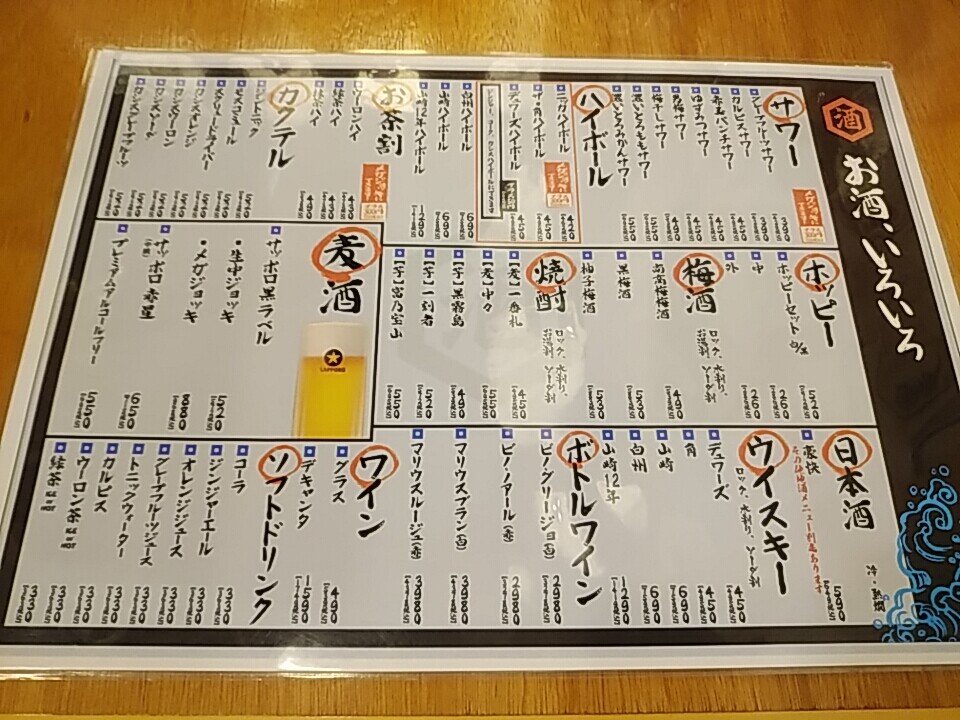 酒
お酒、いろいろ
サワー
グレープフルーツサワー 390
カルピスサワー 390
赤玉パンチサワー
ゆずみつサワー
男梅サワー
梅干しサワー
濃いとろももサワー 550
濃いとろみかんサワー 550
ハイボール
ニッカハイボール 420
ロザ・角ハイボール 450
デュワーズハイボール 450
白州ハイボール 690
山崎ハイボール 690
山崎12年ハイボール 1290
お茶割
ウーロンハイ 430
緑茶ハイ 430
抹茶ハイ 490
カクテル
ジントニック
モスコミュール 550
スクリュードライバー 550
カシスオレンジ 550
カシスウーロン 550
カシスソーダ 550
カシスグレープフルーツ 550
ホッピー
ホッピーセット 白/黒 520
中 260
外 260
梅酒
ロック、水割り、お湯割、ソーダ割
南高梅梅酒 490
黒梅酒 530
柚子梅酒 530
焼酎
ロック、水割り、お湯割、ソーダ割
【麦】一番札 450
【麦】中々 550
【芋】黒霧島 490
【芋】一刻者 520
【芋】富乃宝山 550
麦酒
サッポロ黒ラベル
・生中ジョッキ 520
・メガジョッキ 880
サッポロ赤星 650
プレミアムアルコールフリー 550
SAPPORO
日本酒
冷・熱燗
豪快 590
その他地酒メニュー別紙あります
ウイスキー
ロック、水割り、ソーダ割
デュワーズ 450
角 450
山崎 690
白州 690
山崎12年 1290
ボトルワイン
ピノ・グリージョ(白) 2980
ピノ・ノアール(赤) 2980
マリウスブラン(白) 3980
マリウスルージュ(赤) 3980
ワイン
グラス 490
デキャンタ 1590
ソフトドリンク
コーラ 330
ジンジャーエール 330
オレンジジュース 330
グレープフルーツジュース 330
トニックウォーター 330
カルピス 330
ウーロン茶 330
緑茶 330